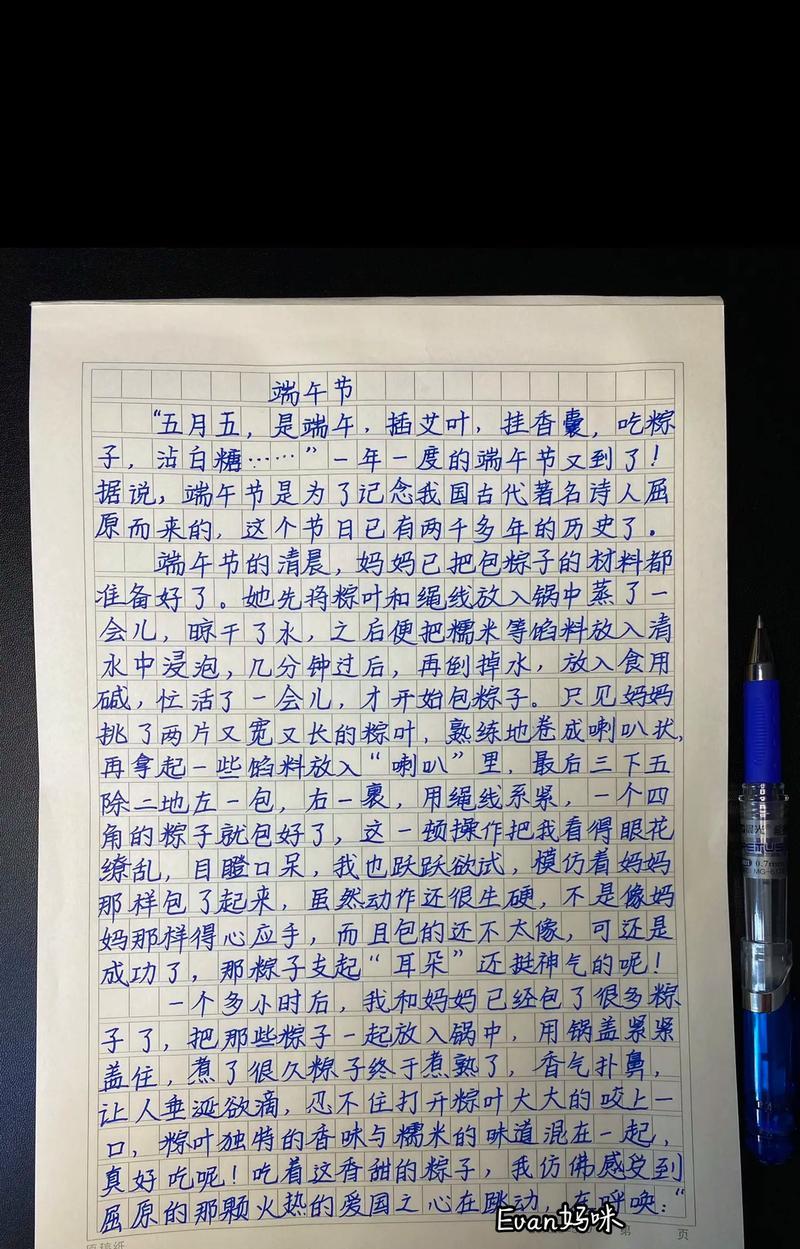 端午节
“五月五，是端午，插艾叶，挂香囊，吃粽
子，沾白糖……”一年一度的端午节又到了！
据说，端午节是为了记念我国古代著名诗人屈
原而来的，这个节日已有两千多年的历史了。
端午节的清晨，妈妈已把包粽子的材料都
准备好了。她先将粽叶和绳线放入锅中蒸了一
会儿，晾干了水，之后便把糯米等馅料放入清
水中浸泡，几分钟过后，再倒掉水，放入食用
碱，忙活了一会儿，才开始包粽子。只见妈妈
挑了两片又宽又长的粽叶，熟练地卷成喇叭状，
再拿起一些馅料放入“喇叭”里，最后三下五
除二地左一包，右一裹，用绳线系紧，一个四
角的粽子就包好了，这一顿操作把我看得眼花
缭乱，目瞪口呆，我也跃跃欲试，模仿着妈妈
那样包了起来，虽然动作还很生硬，不是像妈
妈那样得心应手，而且包的还不太像，可还是
成功了，那粽子支起“耳朵”还挺神气的呢！
一个多小时后，我和妈妈已经包了很多粽
子了，把那些粽子一起放入锅中，用锅盖紧紧
盖住，煮了很久粽子终于煮熟了，香气扑鼻，
让人垂涎欲滴，忍不住打开粽叶大大的咬上一
口，粽叶独特的香味与糯米的味道混在一起，
真好吃呢！吃着这香甜的粽子，我仿佛感受到
屈原的那颗火热的爱国之心在跳动，在呼唤：“
Evan妈咪
第 页
0.7mm